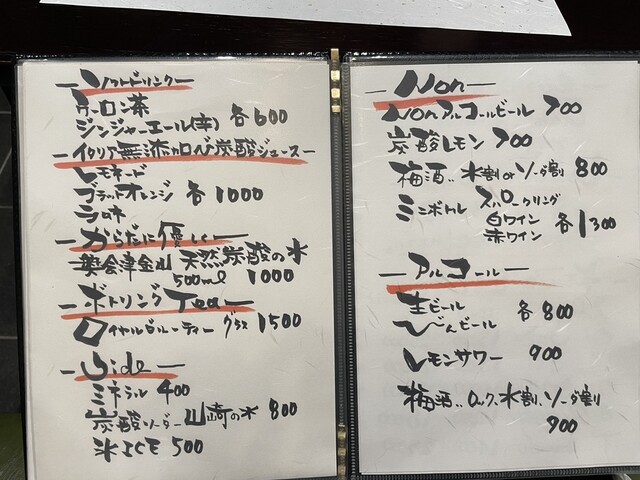 ソフトドリンク
ウーロン茶
ジンジャーエール(辛) 各600
イタリア無添加の炭酸ジュース
レモネード
ブラッドオレンジ 各1000
からだに優しく
奥会津金山 天然炭酸の水
500ml 1000
ボトリングTea
ロイヤルブルーティー グラス 1500
Side
ミネラル 400
炭酸ソーダー山崎の水 800
氷ICE 500
Non
Nonアルコールビール 700
炭酸レモン 700
梅酒.. 水割orソーダ割 800
ミニボトル スパークリング
白ワイン 各1300
赤ワイン
アルコール
生ビール 各800
びんビール
レモンサワー 900
梅酒..ロック、水割、ソーダ割
900